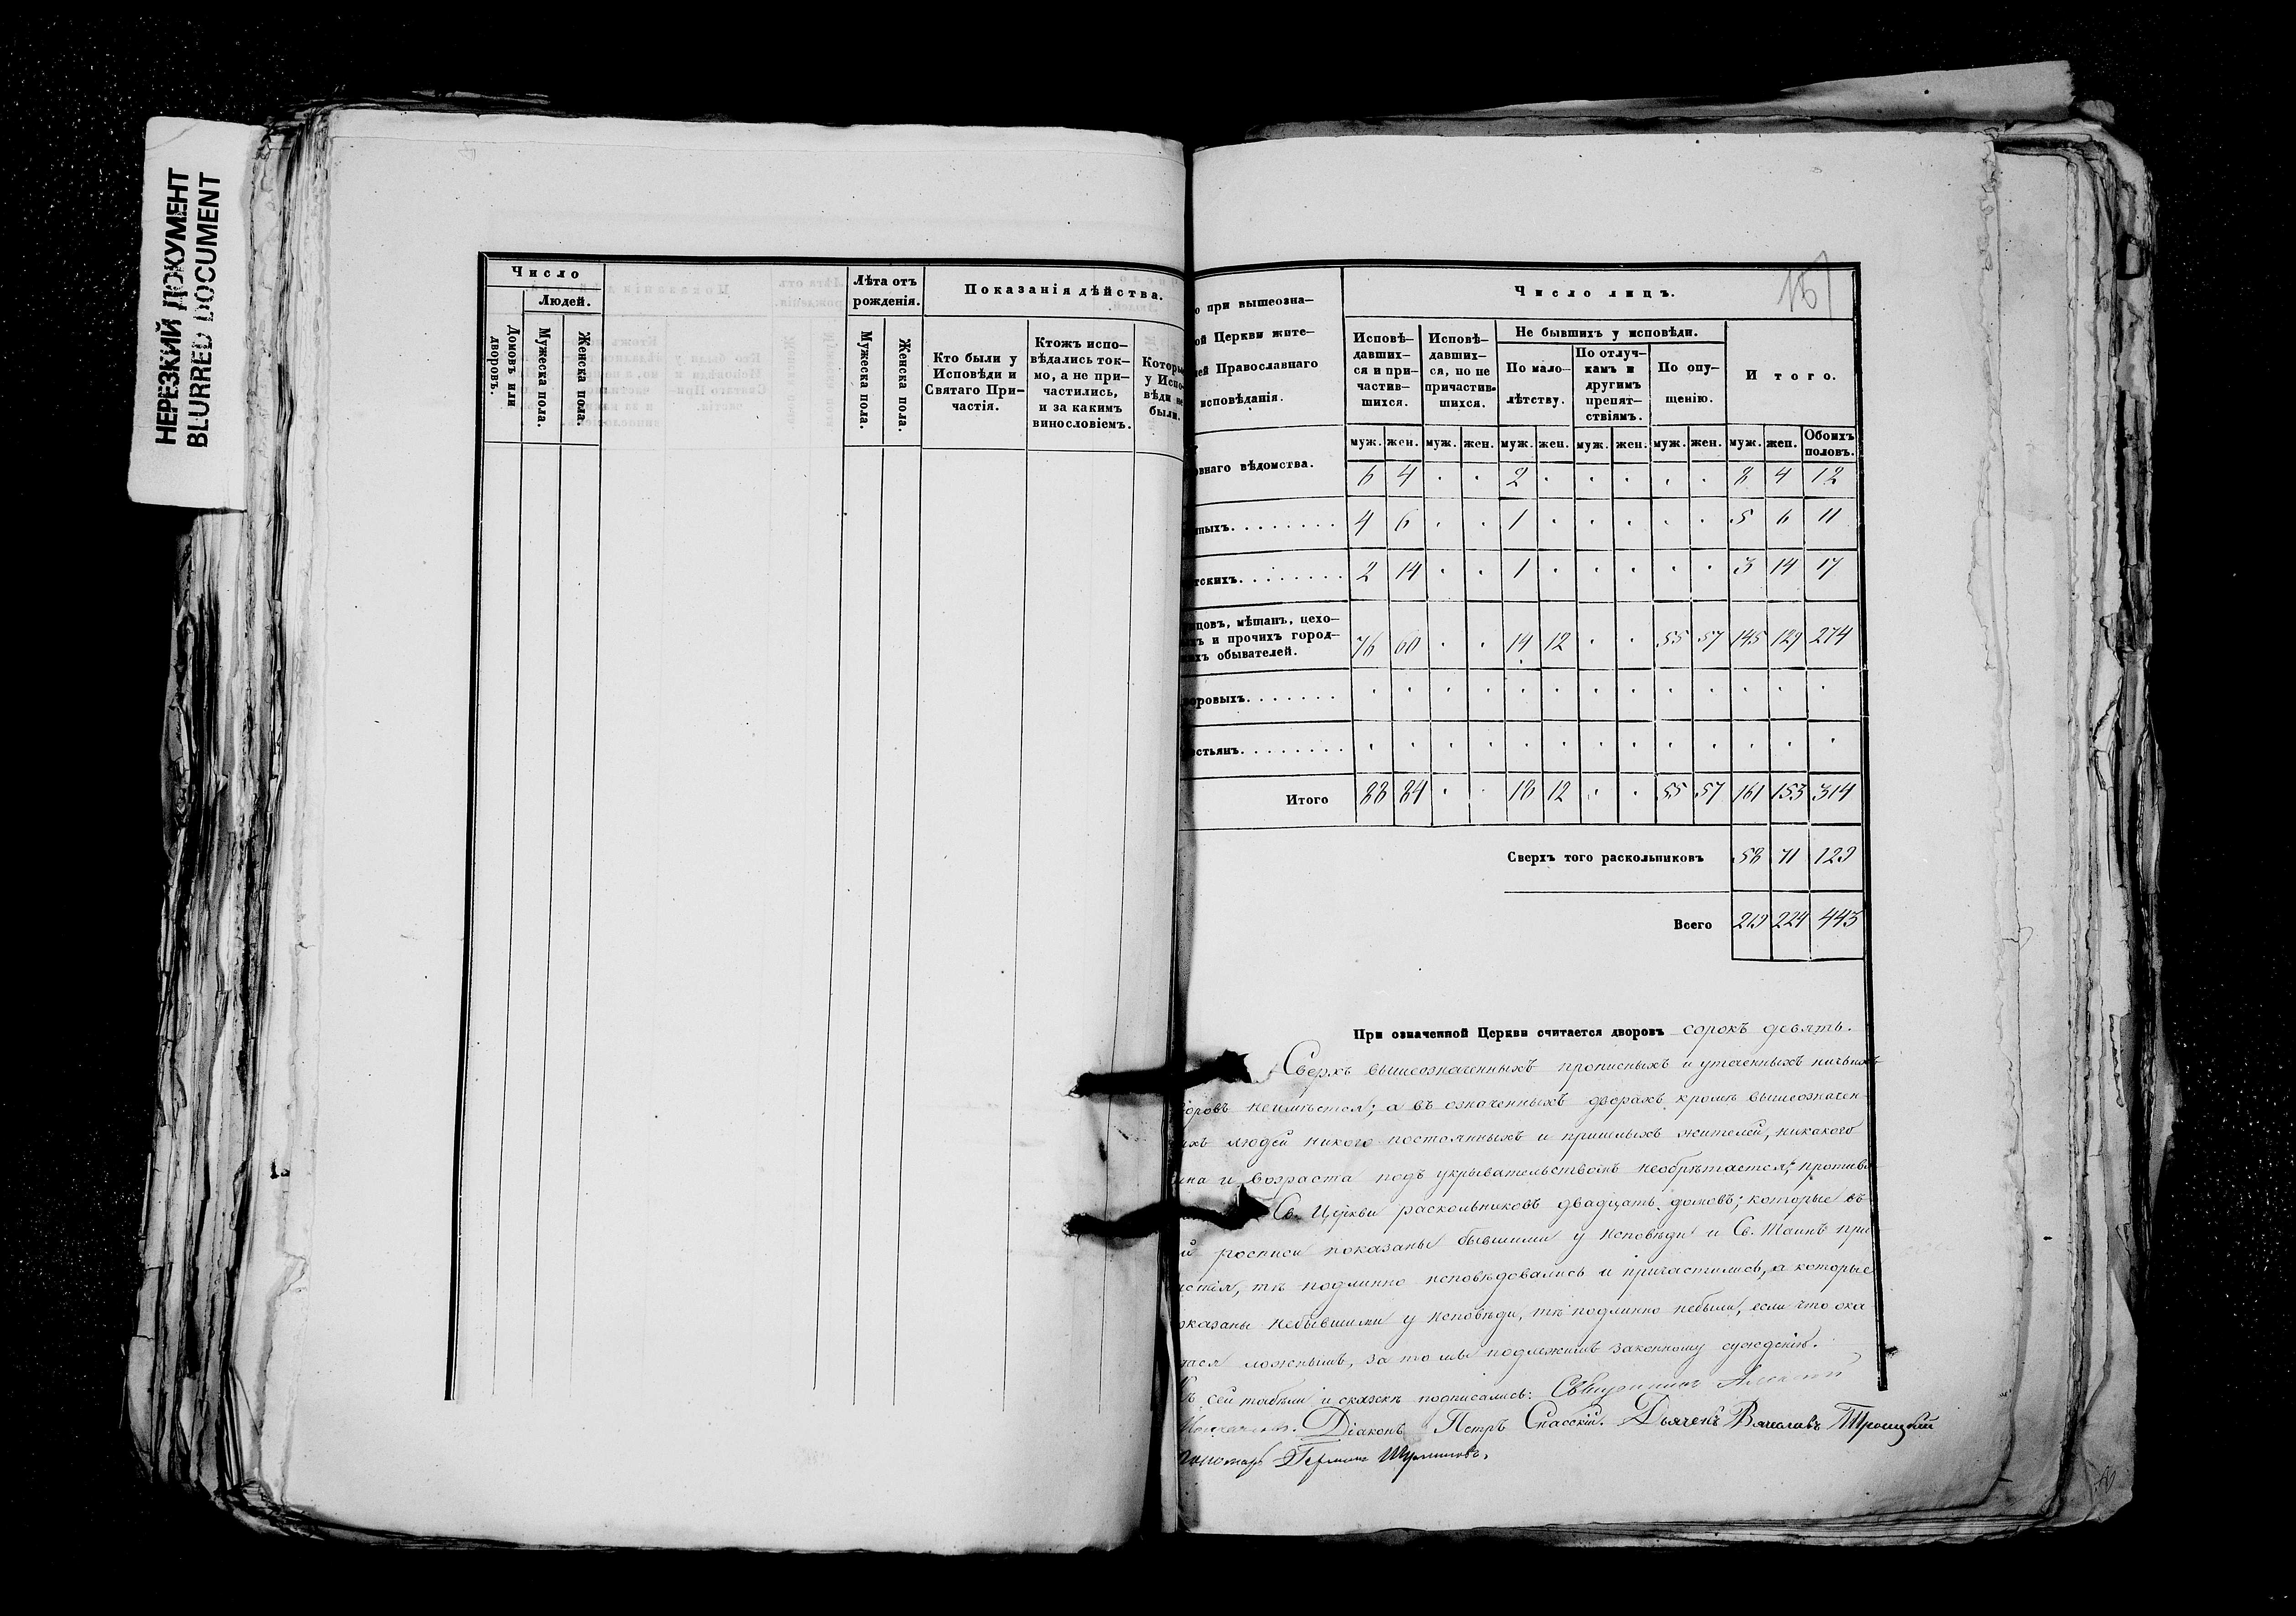 НЕРЕЗКИЙ ДОКУМЕНТ
BLURRED DOCUMENT
Число
Людей.
Домовъ или дворовъ.
Мужеска пола.
Женска пола.
Лѣта отъ
рожденія.
Мужеска пола.
Женска пола.
Показанія дѣйства.
Кто были у
Исповѣди и
Святаго При–
частія.
Ктожъ испо–
вѣдались ток–
мо, а не при–
частились,
и за какимъ
винословіемъ.
Которы
у Испо–
вѣди не
были.
157
о при вышеозна–
ой Церкви жите–
лей Православнаго
исповѣданія.
Число лицъ.
Исповѣ–
давших–
ся и при–
частив–
шихся.
Исповѣ–
давших–
ся, но не
причастив–
шихся.
Не бывшихъ у исповѣди.
По мало–
лѣтству.
По отлуч–
камъ и
другимъ
препят–
ствіямъ.
По опу–
щенію.
Итого.
муж. жен. муж. жен. муж. жен. муж. жен. муж. жен. муж. жен. Обоихъ половъ.
овнаго вѣдомства. 6 4 . . 2 . . . . . 8 4 12
нныхъ. 4 6 . . 1 . . . . . 5 6 11
тскихъ. 2 14 . . 1 . . . . . 3 14 17
цовъ, мѣщанъ, цехо–
ыхъ и прочихъ город–
кихъ обывателей. 76 60 . . 14 12 . . 55 57 145 129 274
оровыхъ. . . . . . . . . . . . . .
стьянъ. . . . . . . . . . . . . .
Итого 88 84 . . 18 12 . . 55 57 161 153 314
Сверхъ того раскольниковъ 58 71 129
Всего 219 224 443
При означенной Церкви считается дворовъ сорокъ девять.
Сверхъ вышеозначенныхъ прописныхъ и утаенныхъ ничьихъ
воровъ неимѣется; а въ означенныхъ дворахъ кромѣ вышеозначен
ыхъ людей никого постоянныхъ и пришлыхъ жителей, никакого
ина и возраста подъ укрывательствомъ необрѣтается; противо
Св. Церкви раскольниковъ двадцать домовъ; которые въ
й росписи показаны бывшими у Исповѣди и Св. Таинъ при
астія, тѣ подлинно исповѣдовались и причастились, а которые
оказаны небывшими у Исповѣди, тѣ подлинно небыли, если что ока
ается ложнымъ, за то мы подлежимъ законному сужденію.
Къ сей табели и сказкѣ подписались: Священникъ Алексѣй
Діаконъ Петръ Спасскій. Дьячекъ Вячеславъ Троицкій
Пономарь Германъ